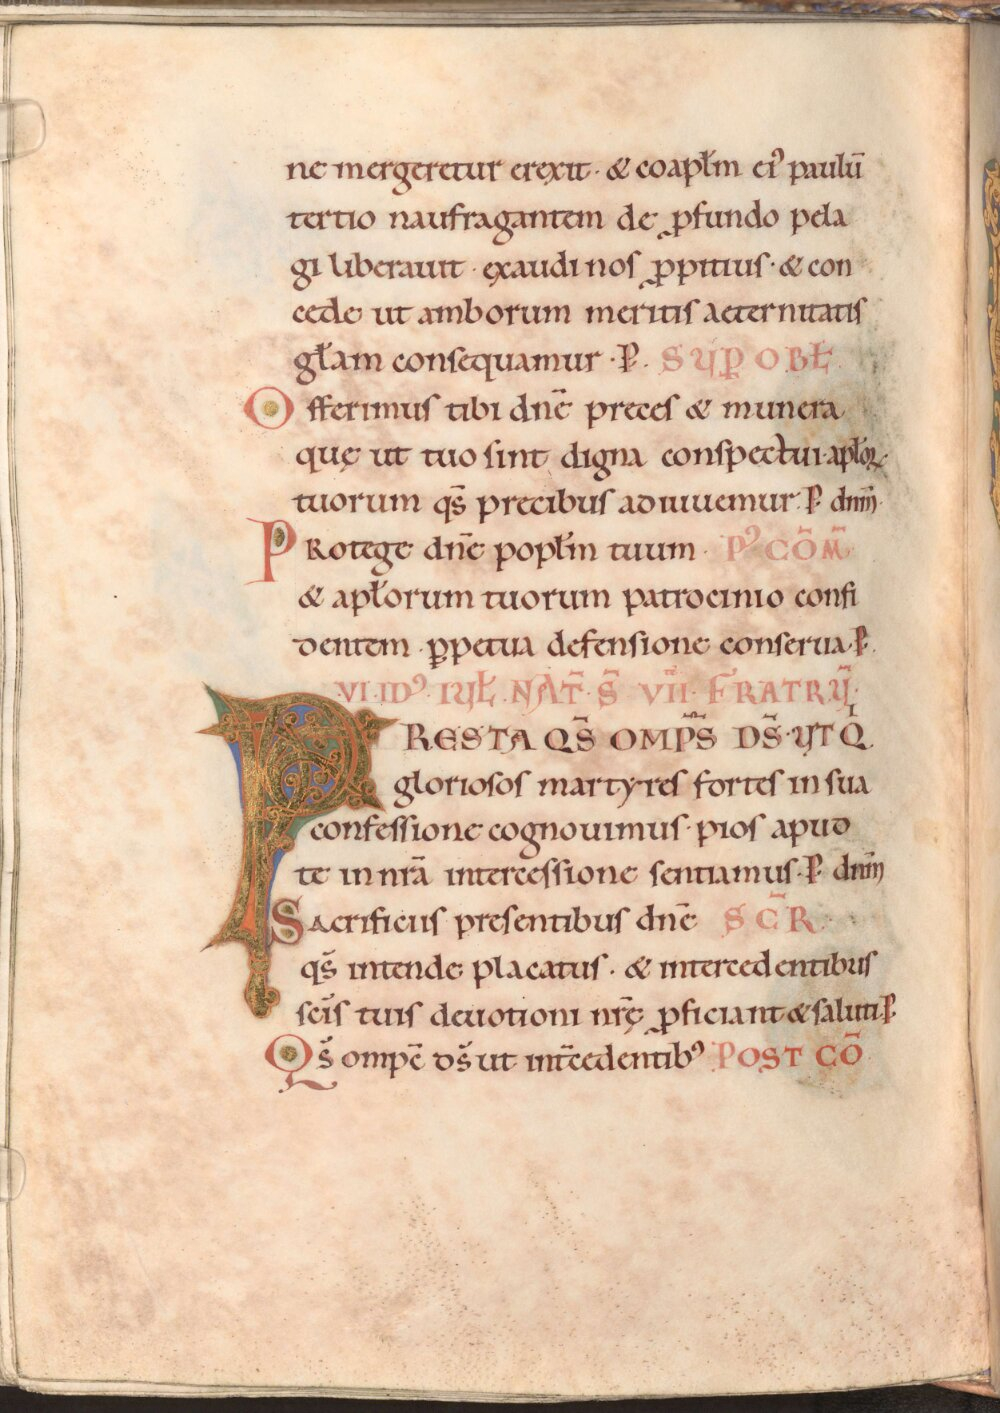 ne mergeretur erexit· & coapłm ei⁹ paulū
tertio naufragantem de ꝓfundo pela
gi liberauit· exaudi nos ꝓpitius· & con
cede ut amborum meritis aeternitatis
głam consequamur· P̶. SUP̱ OBŁ
Offerimus tibi dn̄e preces & munera
quę ut tuo sint digna conspectui· apłoꝝ
tuorum qs̄ precibus adiuuemur. P̶ dnm̄
Protege dn̄e popłm tuum· P⁹ CŌM̄
& apłorum tuorum patrocinio confi
dentem ꝑpetua defensione conserua. P̶
VI. ID⁹. IUŁ. NAT̄. S̄. VII. FRATRŪ.
PRESTA QS̄ OMP̄S DS̄· UT Qͥ
gloriosos martyres fortes in sua
confessione cognouimus· pios apud
te in nrā intercessione sentiamus. P̶ dnm̄
Sacrificiis presentibus dn̄e SC̄R
qs̄ intende placatus· & intercedentibus
scīs tuis deuotioni nrę̄ ꝓficiant & saluti P̶
Qs̄ ompē ds̄ ut int̄cedentib⁹ POST CŌ